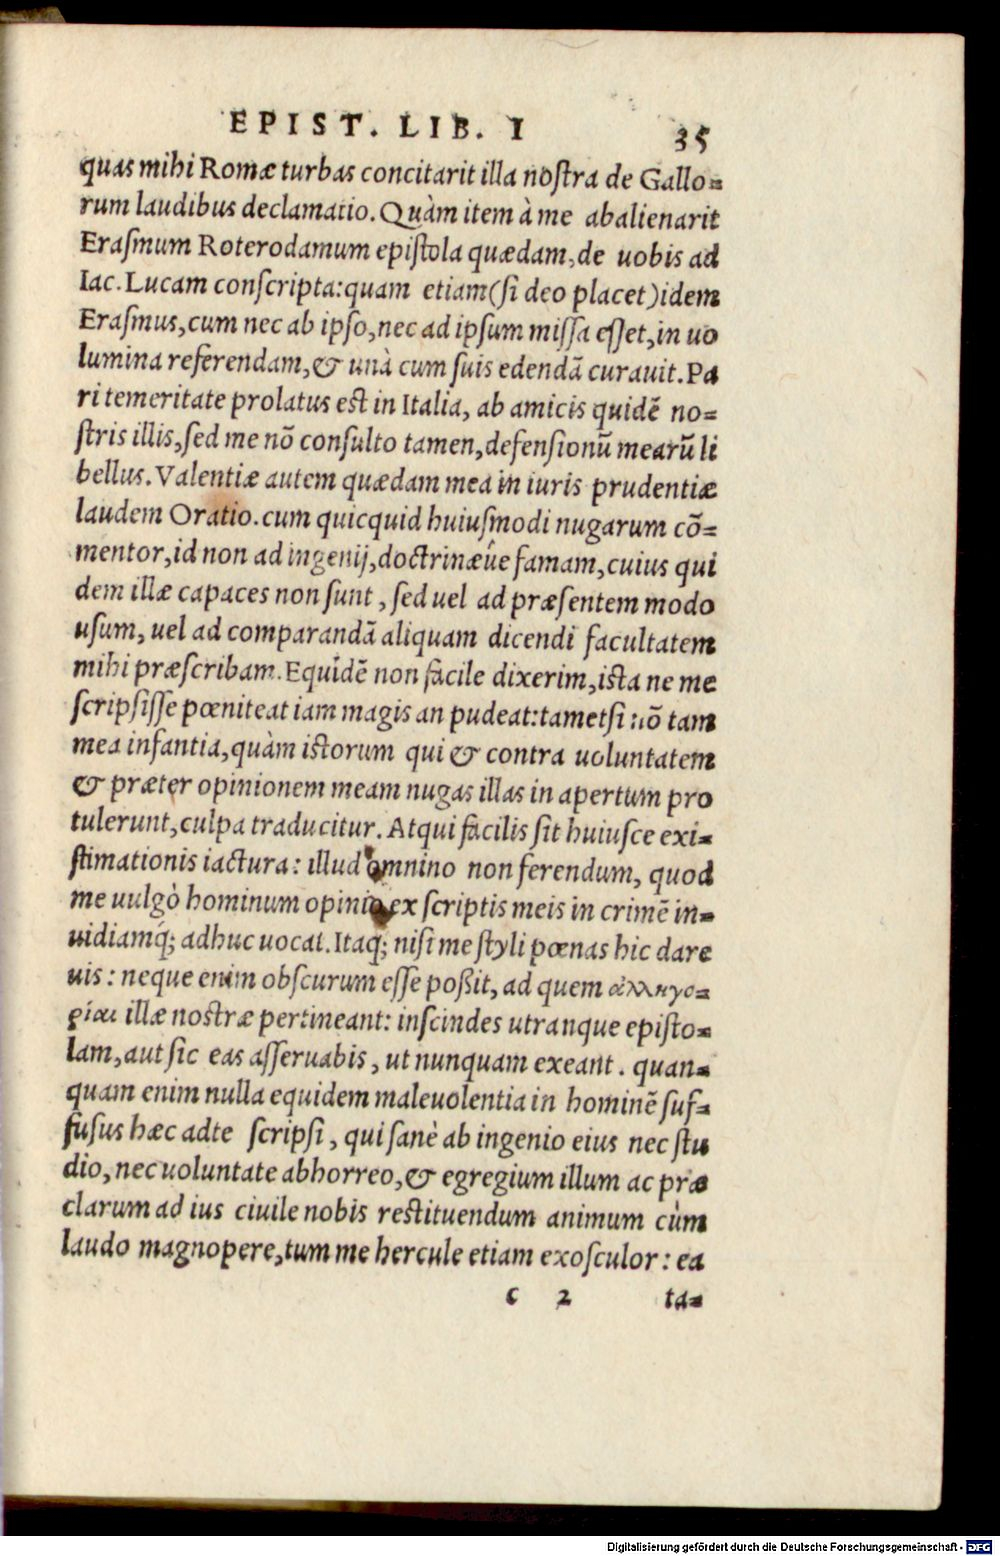 EPIST. LIB. I 35
quas mihi Romæ turbas concitarit illa noſtra de Gallo=
rum laudibus declamatio. Quàm item à me abalienarit
Eraſmum Roterodamum epiſtola quædam, de uobis ad
Iac. Lucam conſcripta: quam etiam (ſi deo placet) idem
Eraſmus, cum nec ab ipſo, nec ad ipſum miſſa eſſet, in uo
lumina referendam, & unà cum ſuis edendā curauit. Pa
ri temeritate prolatus est in Italia, ab amicis quidē no=
ſtris illis, ſed me nō conſulto tamen, defenſionū mearū li
bellus. Valentiæ autem quædam mea in iuris prudentiæ
laudem Oratio. cum quicquid huiuſmodi nugarum cō=
mentor, id non ad ingenij, doctrinæúe famam, cuius qui
dem illæ capaces non ſunt, ſed uel ad præſentem modo
uſum, uel ad comparandā aliquam dicendi facultatem
mihi præſcribam. Equidē non facile dixerim, ista ne me
ſcripſiſſe pœniteat iam magis an pudeat: tametſi nō tam
mea infantia, quàm istorum qui & contra uoluntatem
& præter opinionem meam nugas illas in apertum pro
tulerunt, culpa traducitur. Atqui facilis ſit huiuſce exi=
ſtimationis iactura: illud omnino non ferendum, quod
me uulgò hominum opinio ex ſcriptis meis in crimē in=
uidiamq́; adhuc uocat. Itaq; niſi me ſtyli pœnas hic dare
uis: neque enim obſcurum eſſe poßit, ad quem ἀλληγο=
ρίαι illæ nostræ pertineant: inſcindes utranque epiſto=
lam, aut ſic eas aſſeruabis, ut nunquam exeant. quan=
quam enim nulla equidem maleuolentia in hominē ſuf=
fuſus hæc adte ſcripſi, qui ſanè ab ingenio eius nec ſtu
dio, nec uoluntate abhorreo, & egregium illum ac præ
clarum ad ius ciuile nobis restituendum animum cùm
laudo magnopere, tum me hercule etiam exoſculor: ea
c 2 ta=
Digitalisierung gefördert durch die Deutsche Forschungsgemeinschaft - DFG